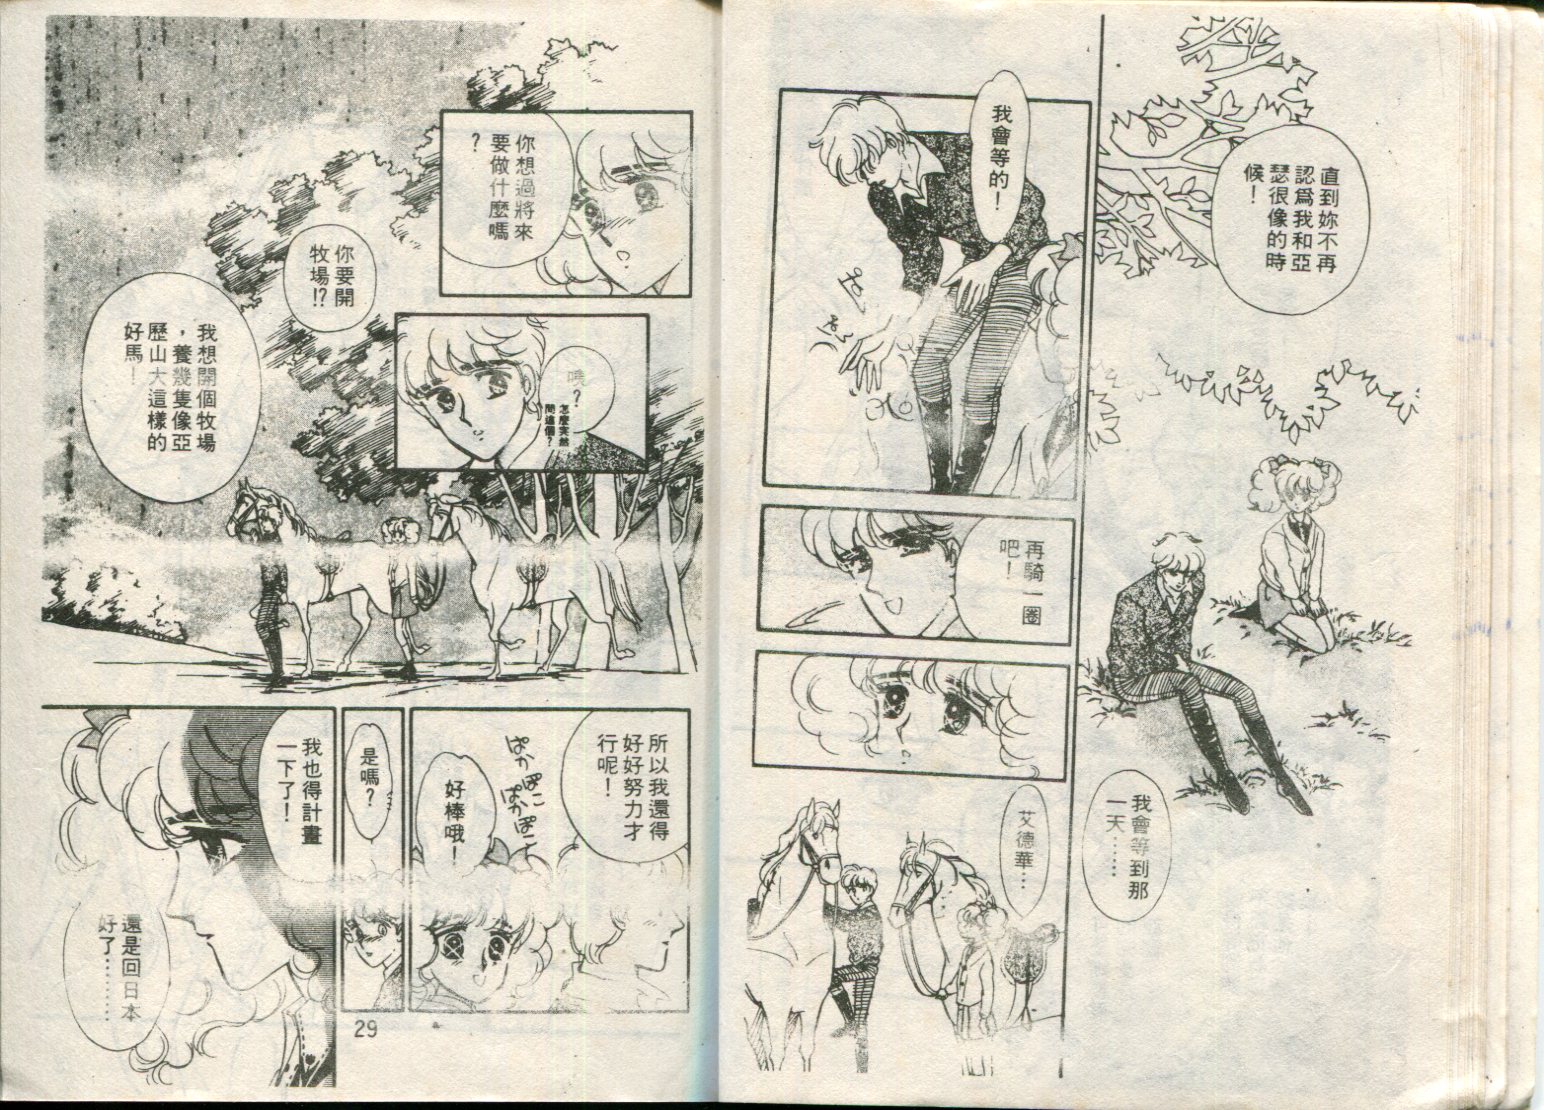 直到妳不再
認爲我和亞
瑟很像的時
候！
我會等到那
一天……
我會等的！
再騎一圈
吧！
艾德華…
你想過將來
要做什麼嗎
？
哦？
怎麼突然
問這個？
我想開個牧場
，養幾隻像亞
歷山大這樣的
好馬！
你要開
牧場!?
所以我還得
好好努力才
行呢！
ぱかぽこ
ぱかぽこ
好棒哦！
是嗎？
我也得計畫
一下了！
還是回日本
好了………
29